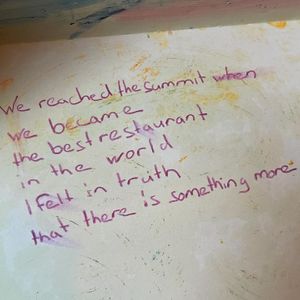 We reached the summit when
we became
the best restaurant
in the world
I felt in truth
that there is something more